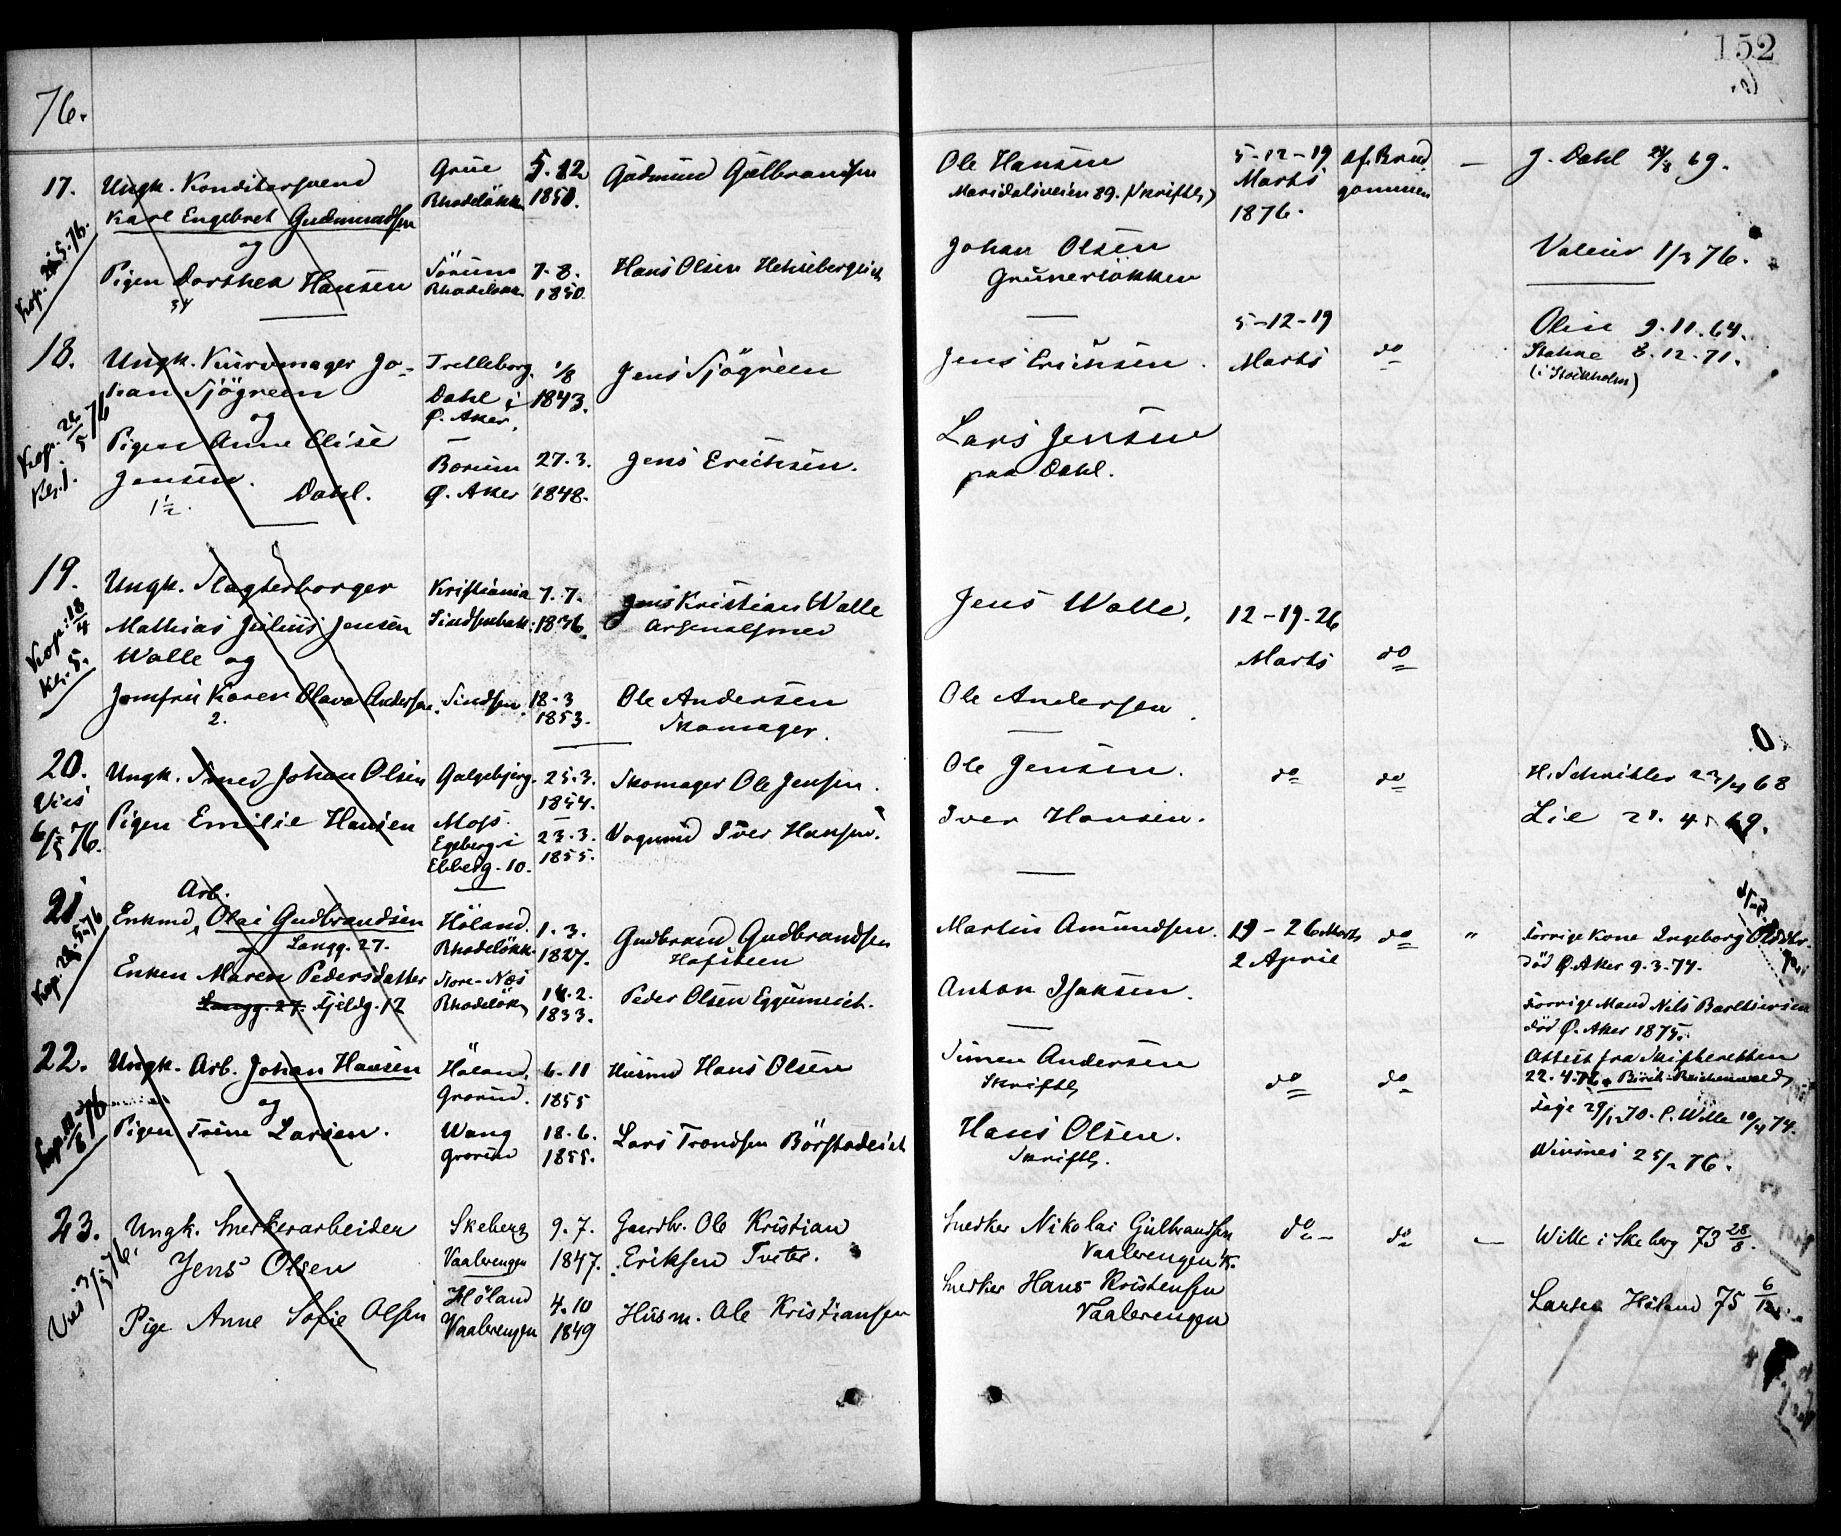 152
76.
17. Ungk. Konditorsvend Grue 5. 12 Gudmund Gulbrandsen Ole Hansen 5-12-19 af Brud — J. Dahl 69.
Karl Engebret Gudmundsen Rhodelökken 1850. Maridalsveien 89. (Skriftl) Marts gommen
Kop. 5. 76. og 1876.
Pigen Dorthea Hansen Sörum 7. 8. Hans Olsen Johan Olsen 1/3 76.
34 Rhodelökk 1850. Grünerlökken
18. Ungk. Kurvmager Jo- Trelleborg. 1/8 Jens Sjögreen Jens Erichsen. 5-12-19 do Olin 9. 11. 64.
han Sjögreen Dahl i 1843. Marts 8. 12. 71.
og Ø. Aker. (i Stockholm)
Kop. 28/5 76 Pigen Anne Elise Borum 27. 3. Jens Erichsen. Lars Jensen
Kl. 1. Jensen. Dahl. Ø. Aker 1848. paa Dahl.
1½.
19. Ungk. Slagterborger Kristiania 7. 7. Jens Kristian Walle Jens Walle. 12-19-26
Kop. 18/4 Mathias Julius Jensen Sindsenbakk. 1836. Arsenalsmed Marts do
Kl. 5. Walle og
Jomfru Karen Olava Andersen. Sindsen. 18. 3 Ole Andersen Ole Andersen.
2. 1853. Skomager.
20. Ungk. Smed Johan Olsen Galgebjerg. 25. 3. Skomager Ole Jensen. Ole Jensen. do do H. Schnitler 23/4 68
Vies 1854.
6/5 76. Pigen Emilie Hansen Moss. 23. 3. Vognmd Iver Hansen. Iver Hansen. Lie 21. 4. 69.
Egeberg i 1855.
Ebberg. 10.
21. Arb.
Enkmd Olai Gudbrandsen Höland. 1. 3. Gudbrand Gudbrandsen Martin Amundsen. 19-26 Marts do " Forrige Kone Ingeborg
og Langg. 27. Rhodelökk. 1827. 2 April död Ø. Aker 9. 3. 74.
Enken Maren Pedersdatter Store-Næs 14. 2. Peder Olsen Anton Isaksen. Forrige Mand Nils
Langg. 27. Fjeldg. 12 Rhodelök 1833. död Ø. Aker 1875.
Attest fra Skifteretten
22. 4. 76.
22. Ungk. Arb. Johan Hansen Höland. 6. 11 Husmd Hans Olsen Simen Andersen do do
og Grorud. 1855 Skriftl 29/12 70. C. Wille 10/4 74.
Pigen Trine Larsen. Wang 18. 6. Lars Trondsen Hans Olsen.
Grorud 1855. Skriftl. 76.
23. Ungk. Snekkerarbeider Skeberg 9. 7. Gaardbr. Ole Kristian Snedker Nikolai Gulbrandsen do do — Wille i Skeberg 73 28/8.
Jens Olsen Vaalerengen 1847. Eriksen Tveter. Vaalerengen
Vies 3/5 76. Pige Anne Sofie Olsen Höland 4. 10 Husm. Ole Kristiansen Snedker Hans Kristensen Larsen Höland 75 6/12.
Vaalerengen 1849 Vaalerengen